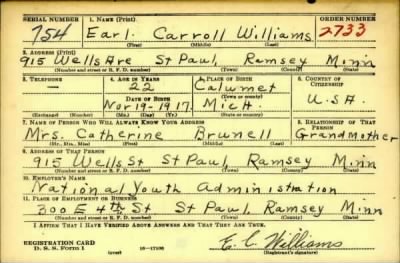 SERIAL NUMBER 1. NAME (Print) ORDER NUMBER
754 Earl Carroll Williams 2733
(First) (Middle) (Last)
2. ADDRESS (Print)
915 Wells Ave St Paul, Ramsey Minn
(Number and street or R. F. D. number) (Town) (County) (State)
3. TELEPHONE 4. AGE IN YEARS 5. PLACE OF BIRTH 6. COUNTRY OF CITIZENSHIP
— 22 Calumet
(Town or county)
DATE OF BIRTH U.S.A.
Nov-19-1917. Mich.
(Exchange) (Number) (Mo.) (Day) (Yr.) (State or country)
7. NAME OF PERSON WHO WILL ALWAYS KNOW YOUR ADDRESS 8. RELATIONSHIP OF THAT PERSON
Mrs. Catherine Brunell Grandmother
(Mr., Mrs., Miss) (First) (Middle) (Last)
9. ADDRESS OF THAT PERSON
915 Wells St St Paul, Ramsey Minn
(Number and street or R. F. D. number) (Town) (County) (State)
10. EMPLOYER'S NAME
National Youth Administration
11. PLACE OF EMPLOYMENT OR BUSINESS
300 E 4th St St Paul, Ramsey Minn
(Number and street or R. F. D. number) (Town) (County) (State)
I AFFIRM THAT I HAVE VERIFIED ABOVE ANSWERS AND THAT THEY ARE TRUE.
REGISTRATION CARD
D. S. S. Form 1 (over) 16—17105 E. C. Williams
(Registrant's signature)